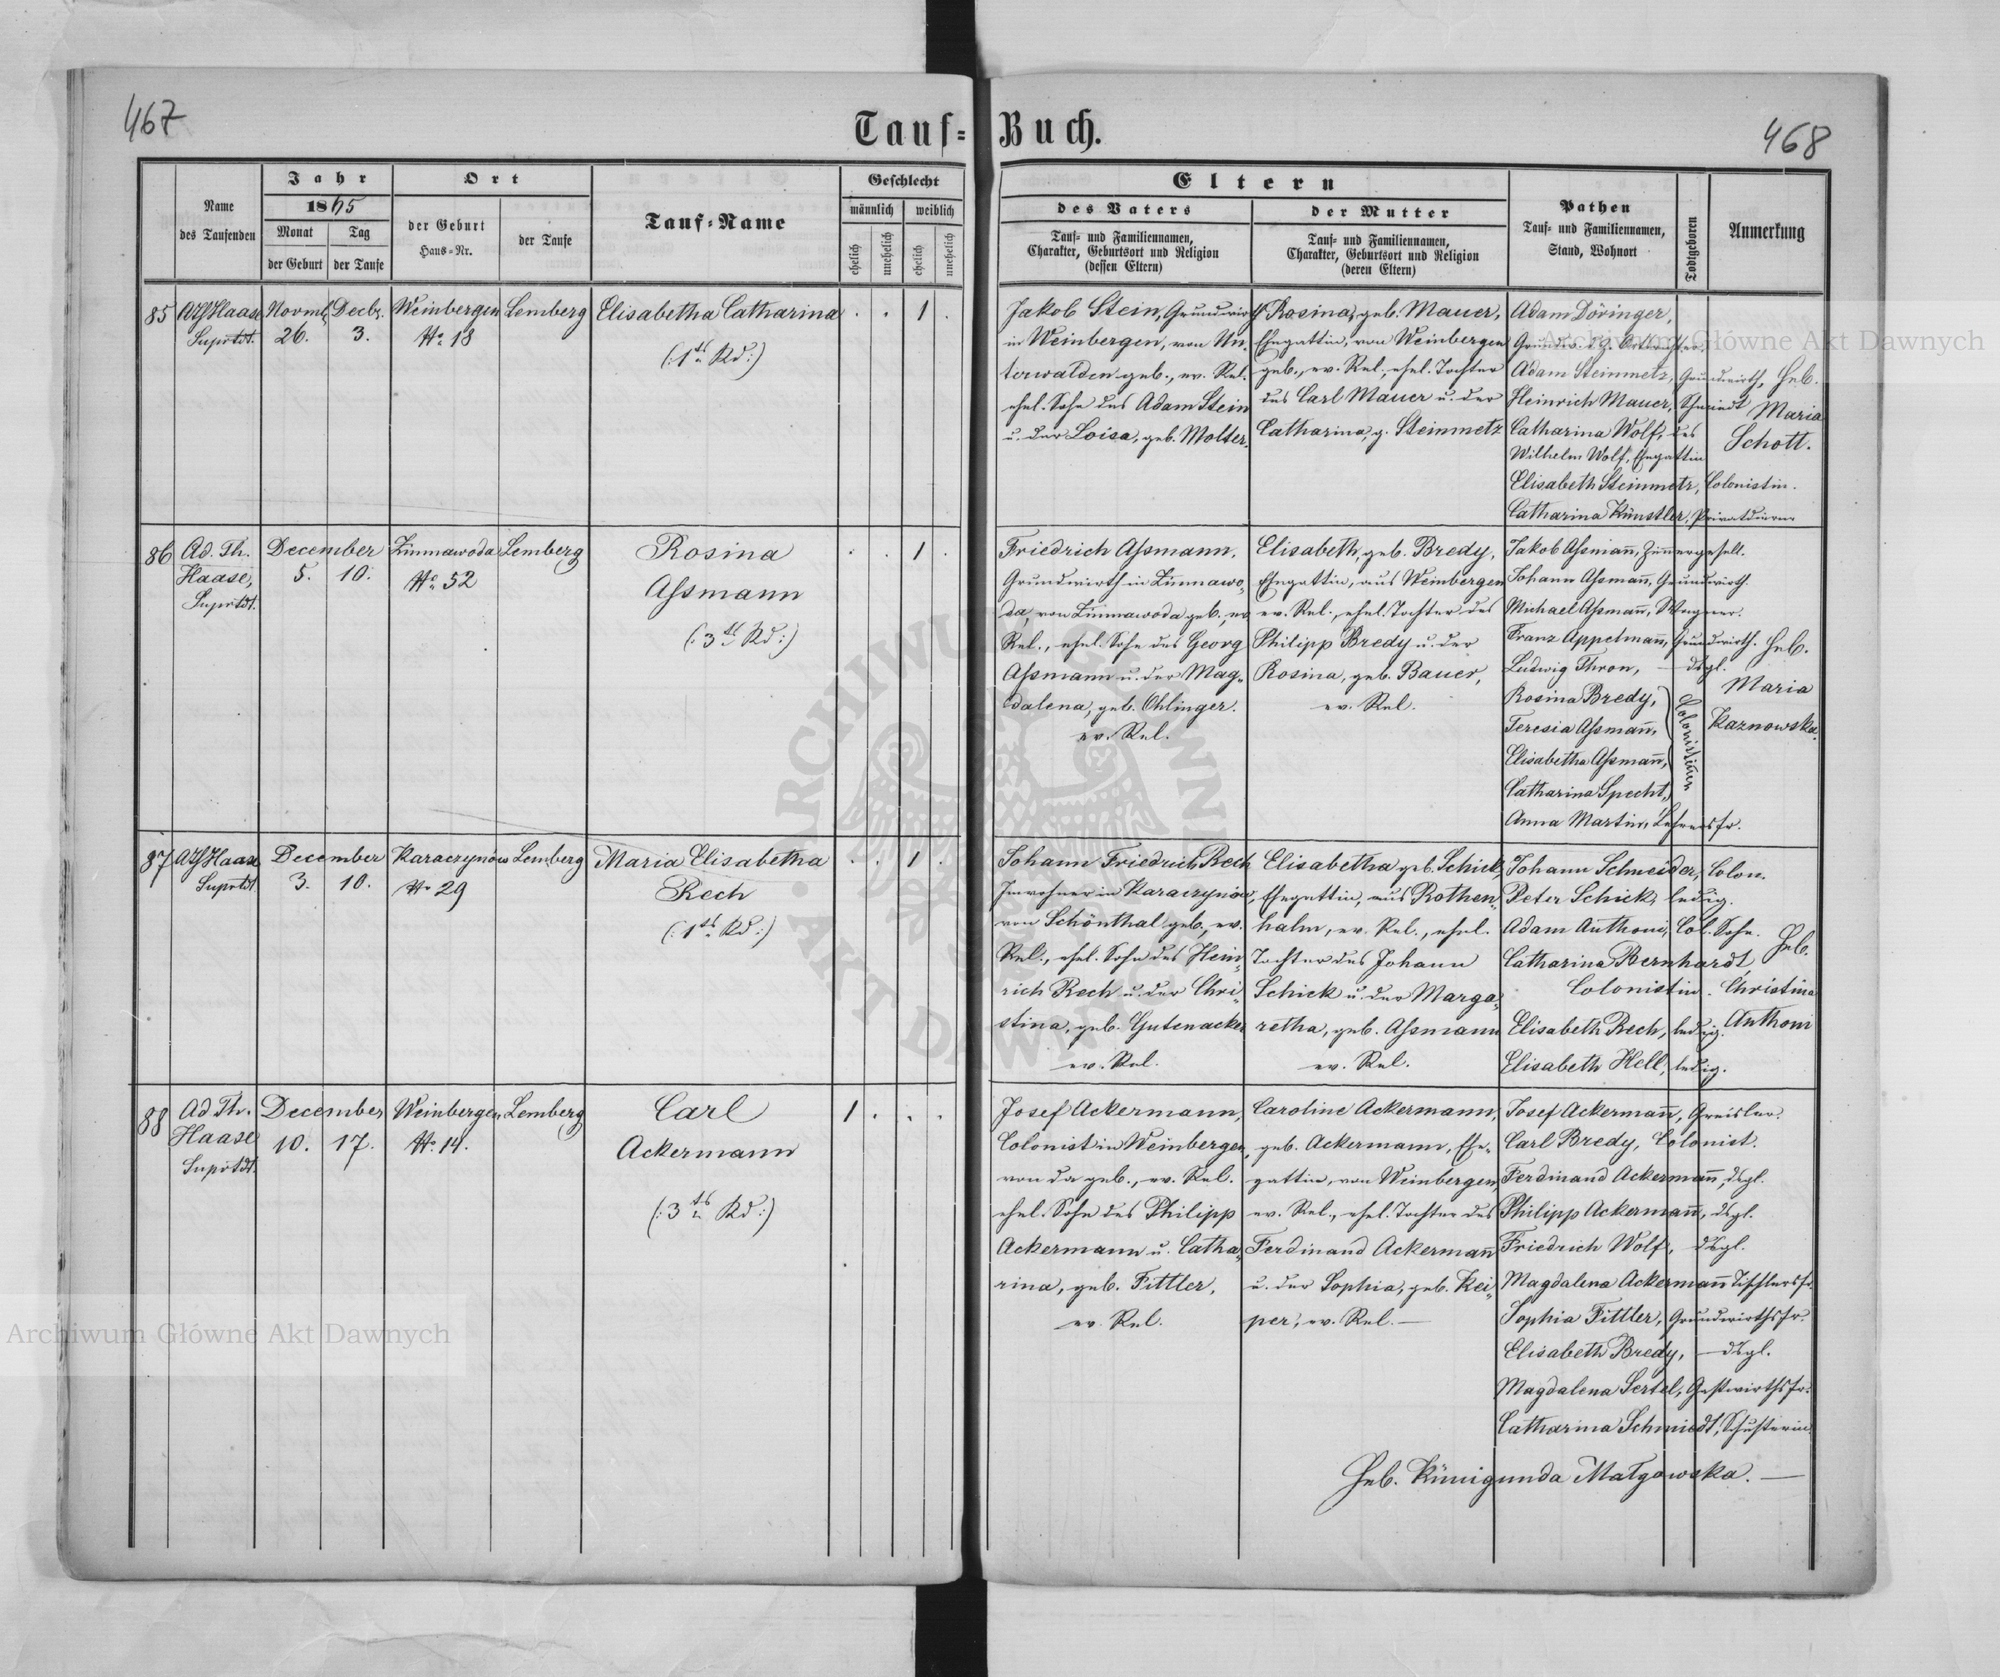 467
Tauf-Buch.
468
Name
des Taufenden
Jahr
1865
Monat
der Geburt
Tag
der Taufe
Ort
der Geburt
Haus-Nr.
der Taufe
Tauf-Name
Geschlecht
männlich
weiblich
ehelich
unehelich
ehelich
unehelich
Eltern
des Vaters
Tauf- und Familiennamen,
Charakter, Geburtsort und Religion
(dessen Eltern)
der Mutter
Tauf- und Familiennamen,
Charakter, Geburtsort und Religion
(deren Eltern)
Pathen
Tauf- und Familiennamen,
Stand, Wohnort
Todtgeboren
Anmerkung
85
Haase
Suprtdt.
26.
Decbr.
3.
Weinbergen
No 18
Lemberg
Elisabetha Catharina
(: 1tes Kd :)
. . 1 .
Jakob Stein, Grundwirth
in Weinbergen, von Un-
terwalden geb., ev. Rel.
ehel. Sohn des Adam Stein
u. der Loisa, geb. Molter.
Rosina, geb. Mauer,
Ehegattin, von Weinbergen
geb., ev. Rel., ehel. Tochter
des Carl Mauer u. der
Catharina, g. Steinmetz
Adam Döringer,
Adam Steinmetz, Grundwirth,
Heinrich Mauer, Schmiedt
Catharina Wolf, des
Wilhelm Wolf, Ehegattin
Elisabeth Steinmetz, Colonistin.
Catharina Künstler,
Heb.
Maria
Schott.
86
Ad. Th.
Haase,
Suprtdt.
December
5. 10.
Zimnawoda
No 52
Lemberg
Rosina
Aßmann
(: 3tes Kd :)
. . 1 .
Friedrich Aßmann,
Grundwirth in Zimnawo-
da, von Zimnawoda geb., ev.
Rel., ehel. Sohn des Georg
Aßmann u. der Mag-
dalena, geb. Ohlinger.
ev. Rel.
Elisabeth, geb. Bredy,
Ehegattin, aus Weinbergen
ev. Rel., ehel. Tochter des
Philipp Bredy u. der
Rosina, geb. Bauer,
ev. Rel.
Jakob Aßmann, Zimmergesell.
Johann Aßmann, Grundwirth.
Michael Aßmann, Wagner.
Franz Appelmann, Grundwirth.
Ludwig Thron, — dsgl.
Rosina Bredy,
Teresia Aßmann,
Elisabetha Aßmann,
Catharina Specht,
Colonistinen
Anna Martin, Lehrersfr.
Heb.
Maria
Kaznowska.
87
Haase
Suprtdt.
December
3. 10.
Karaczynów
No 29
Lemberg
Maria Elisabetha
Rech
(: 1tes Kd :)
. . 1 .
Johann Friedrich Rech
Inwohner in Karaczynów,
von Schönthal geb., ev.
Rel., ehel. Sohn des Hein-
rich Rech u. der Chri-
stina, geb. Gutenacker
ev. Rel.
Elisabetha geb. Schick,
Ehegattin, aus Rothen-
hahn, ev. Rel., ehel.
Tochter des Johann
Schick u. der Marga-
retha, geb. Aßmann
ev. Rel.
Johann Schneider, Colon.
Peter Schick, ledig.
Adam Anthoni, Col. Sohn.
Catharina Bernhardt,
Colonistin.
Elisabeth Rech, ledig.
Elisabeth Hell, ledig.
Heb.
Christina
Anthoni
88
Ad. Th.
Haase
Suprtdt.
December
10. 17.
Weinbergen
No 14.
Lemberg
Carl
Ackermann
(: 3tes Kd :)
1 . . .
Josef Ackermann,
Colonist in Weinbergen,
von da geb., ev. Rel.
ehel. Sohn des Philipp
Ackermann u. Catha-
rina, geb. Fittler,
ev. Rel.
Caroline Ackermann,
geb. Ackermann, Ehe-
gattin, von Weinbergen,
ev. Rel., ehel. Tochter des
Ferdinand Ackermann
u. der Sophia, geb. Kei-
per, ev. Rel. —
Josef Ackermann, Greisler.
Carl Bredy, Colonist.
Ferdinand Ackermann, dsgl.
Philipp Ackermann, dsgl.
Friedrich Wolf, dsgl.
Magdalena Ackermann Tischlersfr.
Sophia Fittler, Grundwirthsfr.
Elisabeth Bredy, — dsgl.
Magdalena Sertel, Gastwirthsfr.
Catharina Schmiedt, Schusterin.
Heb. Künigunda Małgowska. —
Archiwum Główne Akt Dawnych
Archiwum Główne Akt Dawnych